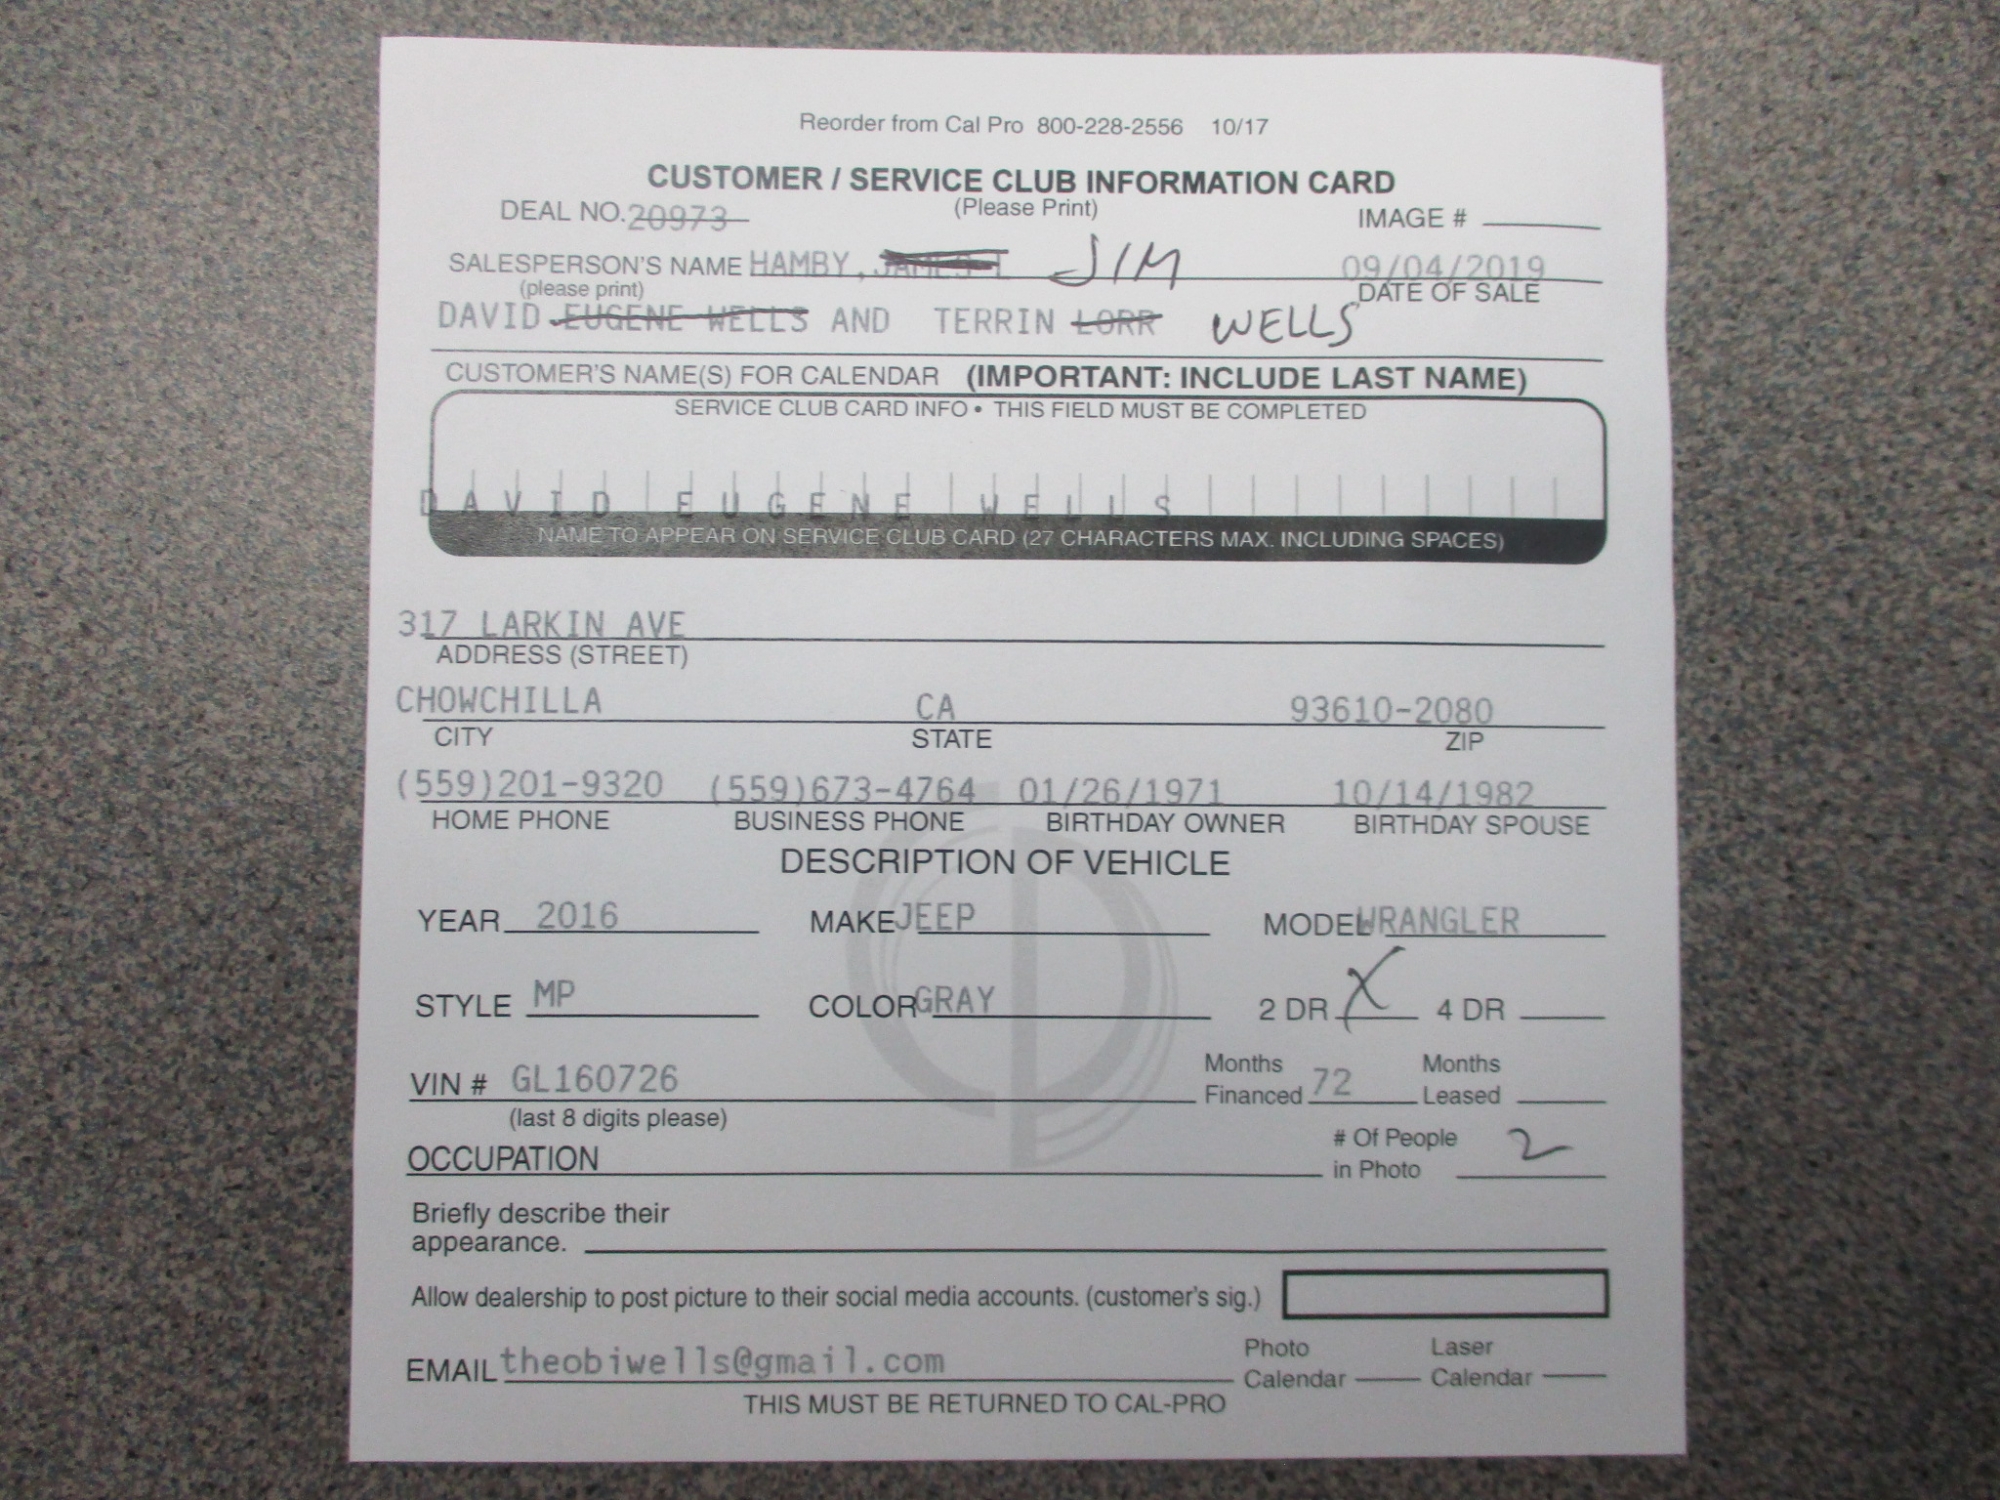 Reorder from Cal Pro 800-228-2556 10/17
CUSTOMER / SERVICE CLUB INFORMATION CARD
DEAL NO. 20973 (Please Print) IMAGE #
SALESPERSON'S NAME HAMBY, JIM 09/04/2019
(please print) DATE OF SALE
DAVID EUGENE WELLS AND TERRIN LORR WELLS
CUSTOMER'S NAME(S) FOR CALENDAR (IMPORTANT: INCLUDE LAST NAME)
SERVICE CLUB CARD INFO • THIS FIELD MUST BE COMPLETED
DAVID EUGENE WELLS
NAME TO APPEAR ON SERVICE CLUB CARD (27 CHARACTERS MAX. INCLUDING SPACES)
317 LARKIN AVE
ADDRESS (STREET)
CHOWCHILLA CA 93610-2080
CITY STATE ZIP
(559)201-9320 (559)673-4764 01/26/1971 10/14/1982
HOME PHONE BUSINESS PHONE BIRTHDAY OWNER BIRTHDAY SPOUSE
DESCRIPTION OF VEHICLE
YEAR 2016 MAKE JEEP MODEL WRANGLER
STYLE MP COLOR GRAY 2 DR X 4 DR
VIN # GL160726 Months Financed 72 Months Leased
(last 8 digits please)
OCCUPATION # Of People in Photo 2
Briefly describe their
appearance.
Allow dealership to post picture to their social media accounts. (customer's sig.)
EMAIL theobiwells@gmail.com Photo Calendar Laser Calendar
THIS MUST BE RETURNED TO CAL-PRO